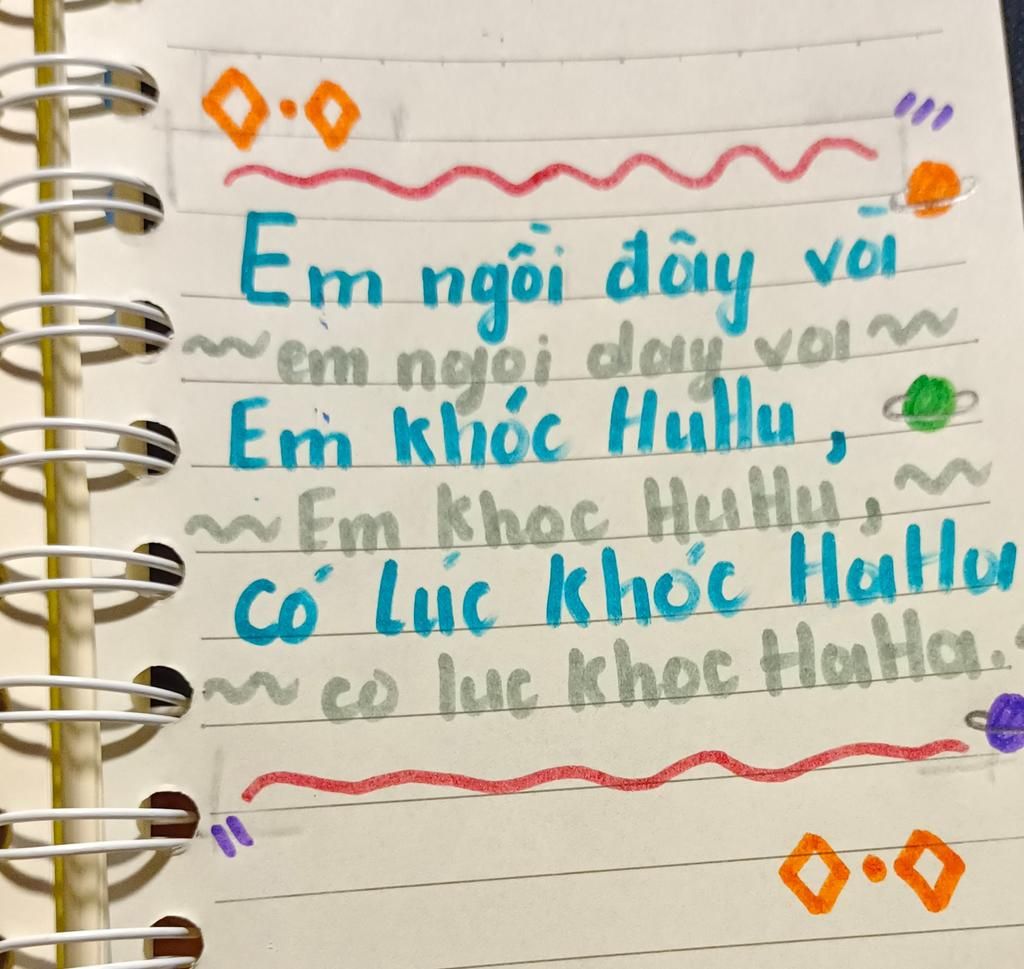 Em ngồi đây vā
em ngoi day voi
Em khóc HuHu,
Em khoc HuHu,
có lúc khóc HaHa
co luc khoc HaHa.